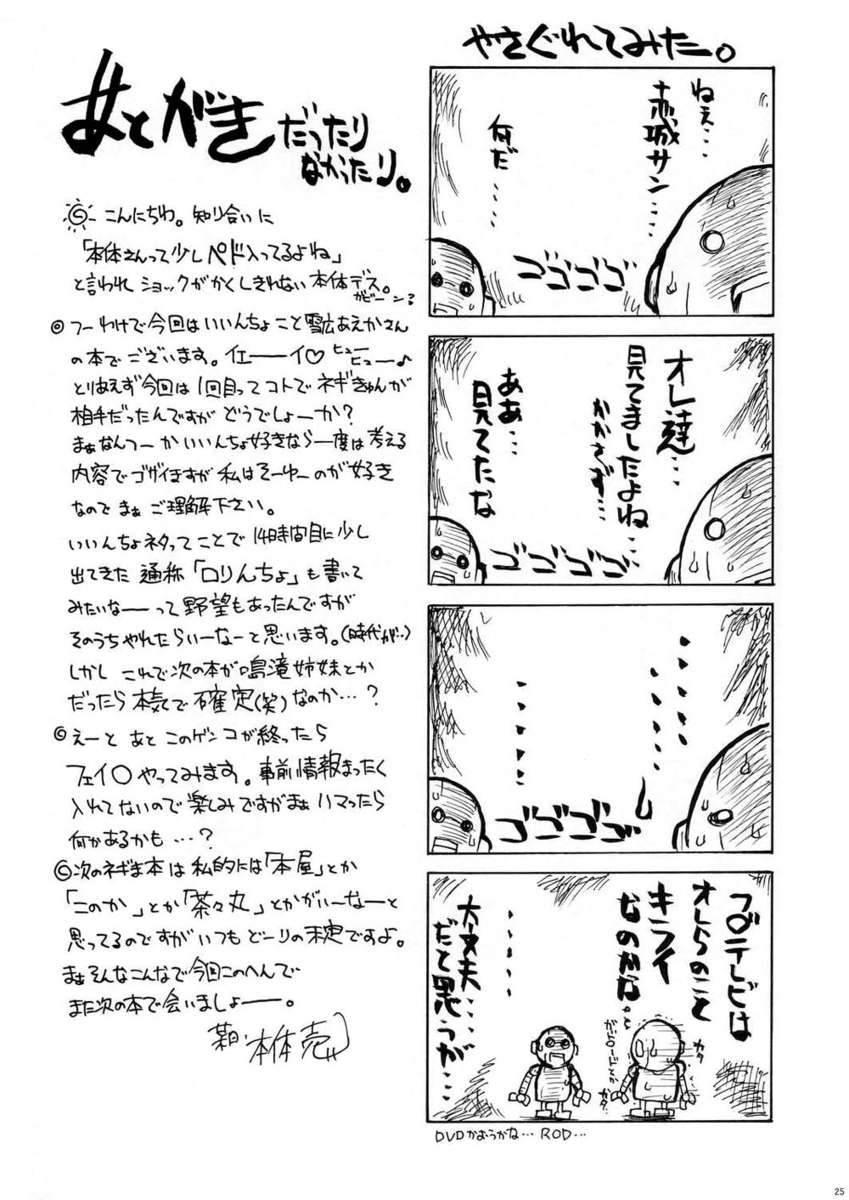 あとがきだったり
なかったり。
こんにちわ。知り合いに
「本体さんって少しペド入ってるよね」
と言われショックがかくしきれない本体デス。
ガビーン?
つーわけで今回はいいんちょこと雪広あえかさん
の本でございます。イエーーイ♡ヒュー
ヒュー♪
とりあえず今回は1回目ってコトでネギきゅんが
相手だったんですがどうでしょーか?
まぁなんつーかいいんちょ好きなら一度は考える
内容でゴザイますが私はそーゆーのが好き
なのでまぁご理解下さい。
いいんちょネタってことで14時間目に少し
出てきた通称「ロりんちょ」も書いて
みたいなーーって野望もあったんですが
そのうちやれたらいーなーと思います。(時代が‥)
しかしこれで次の本が鳴滝姉妹とか
だったら本気で確定(笑)なのか…?
えーとあとこのゲンコが終ったら
フェイ〇やってみます。事前情報まったく
入れてないので楽しみですがまぁハマったら
何かあるかも…?
次のネギま本は私的には「本屋」とか
「このか」とか「茶々丸」とかがいーなーと
思ってるのですがいつもどーりの未定ですよ。
まぁそんなこんなで今回このへんで
また次の本で会いましょーー。
本体売
やさぐれてみたー。
ねぇ…
赤城サン…
何だ……
ゴゴゴゴ
オレ達…
見てましたよね…
かかさず…
ああ…
見てたな
ゴゴゴゴ
ゴゴゴゴ
フ〇テレビは
オレらのこと
キライ
なのかな。
大丈夫…
だと思うが…
カタ
カタ
DVDかおうかな… ROD…
25